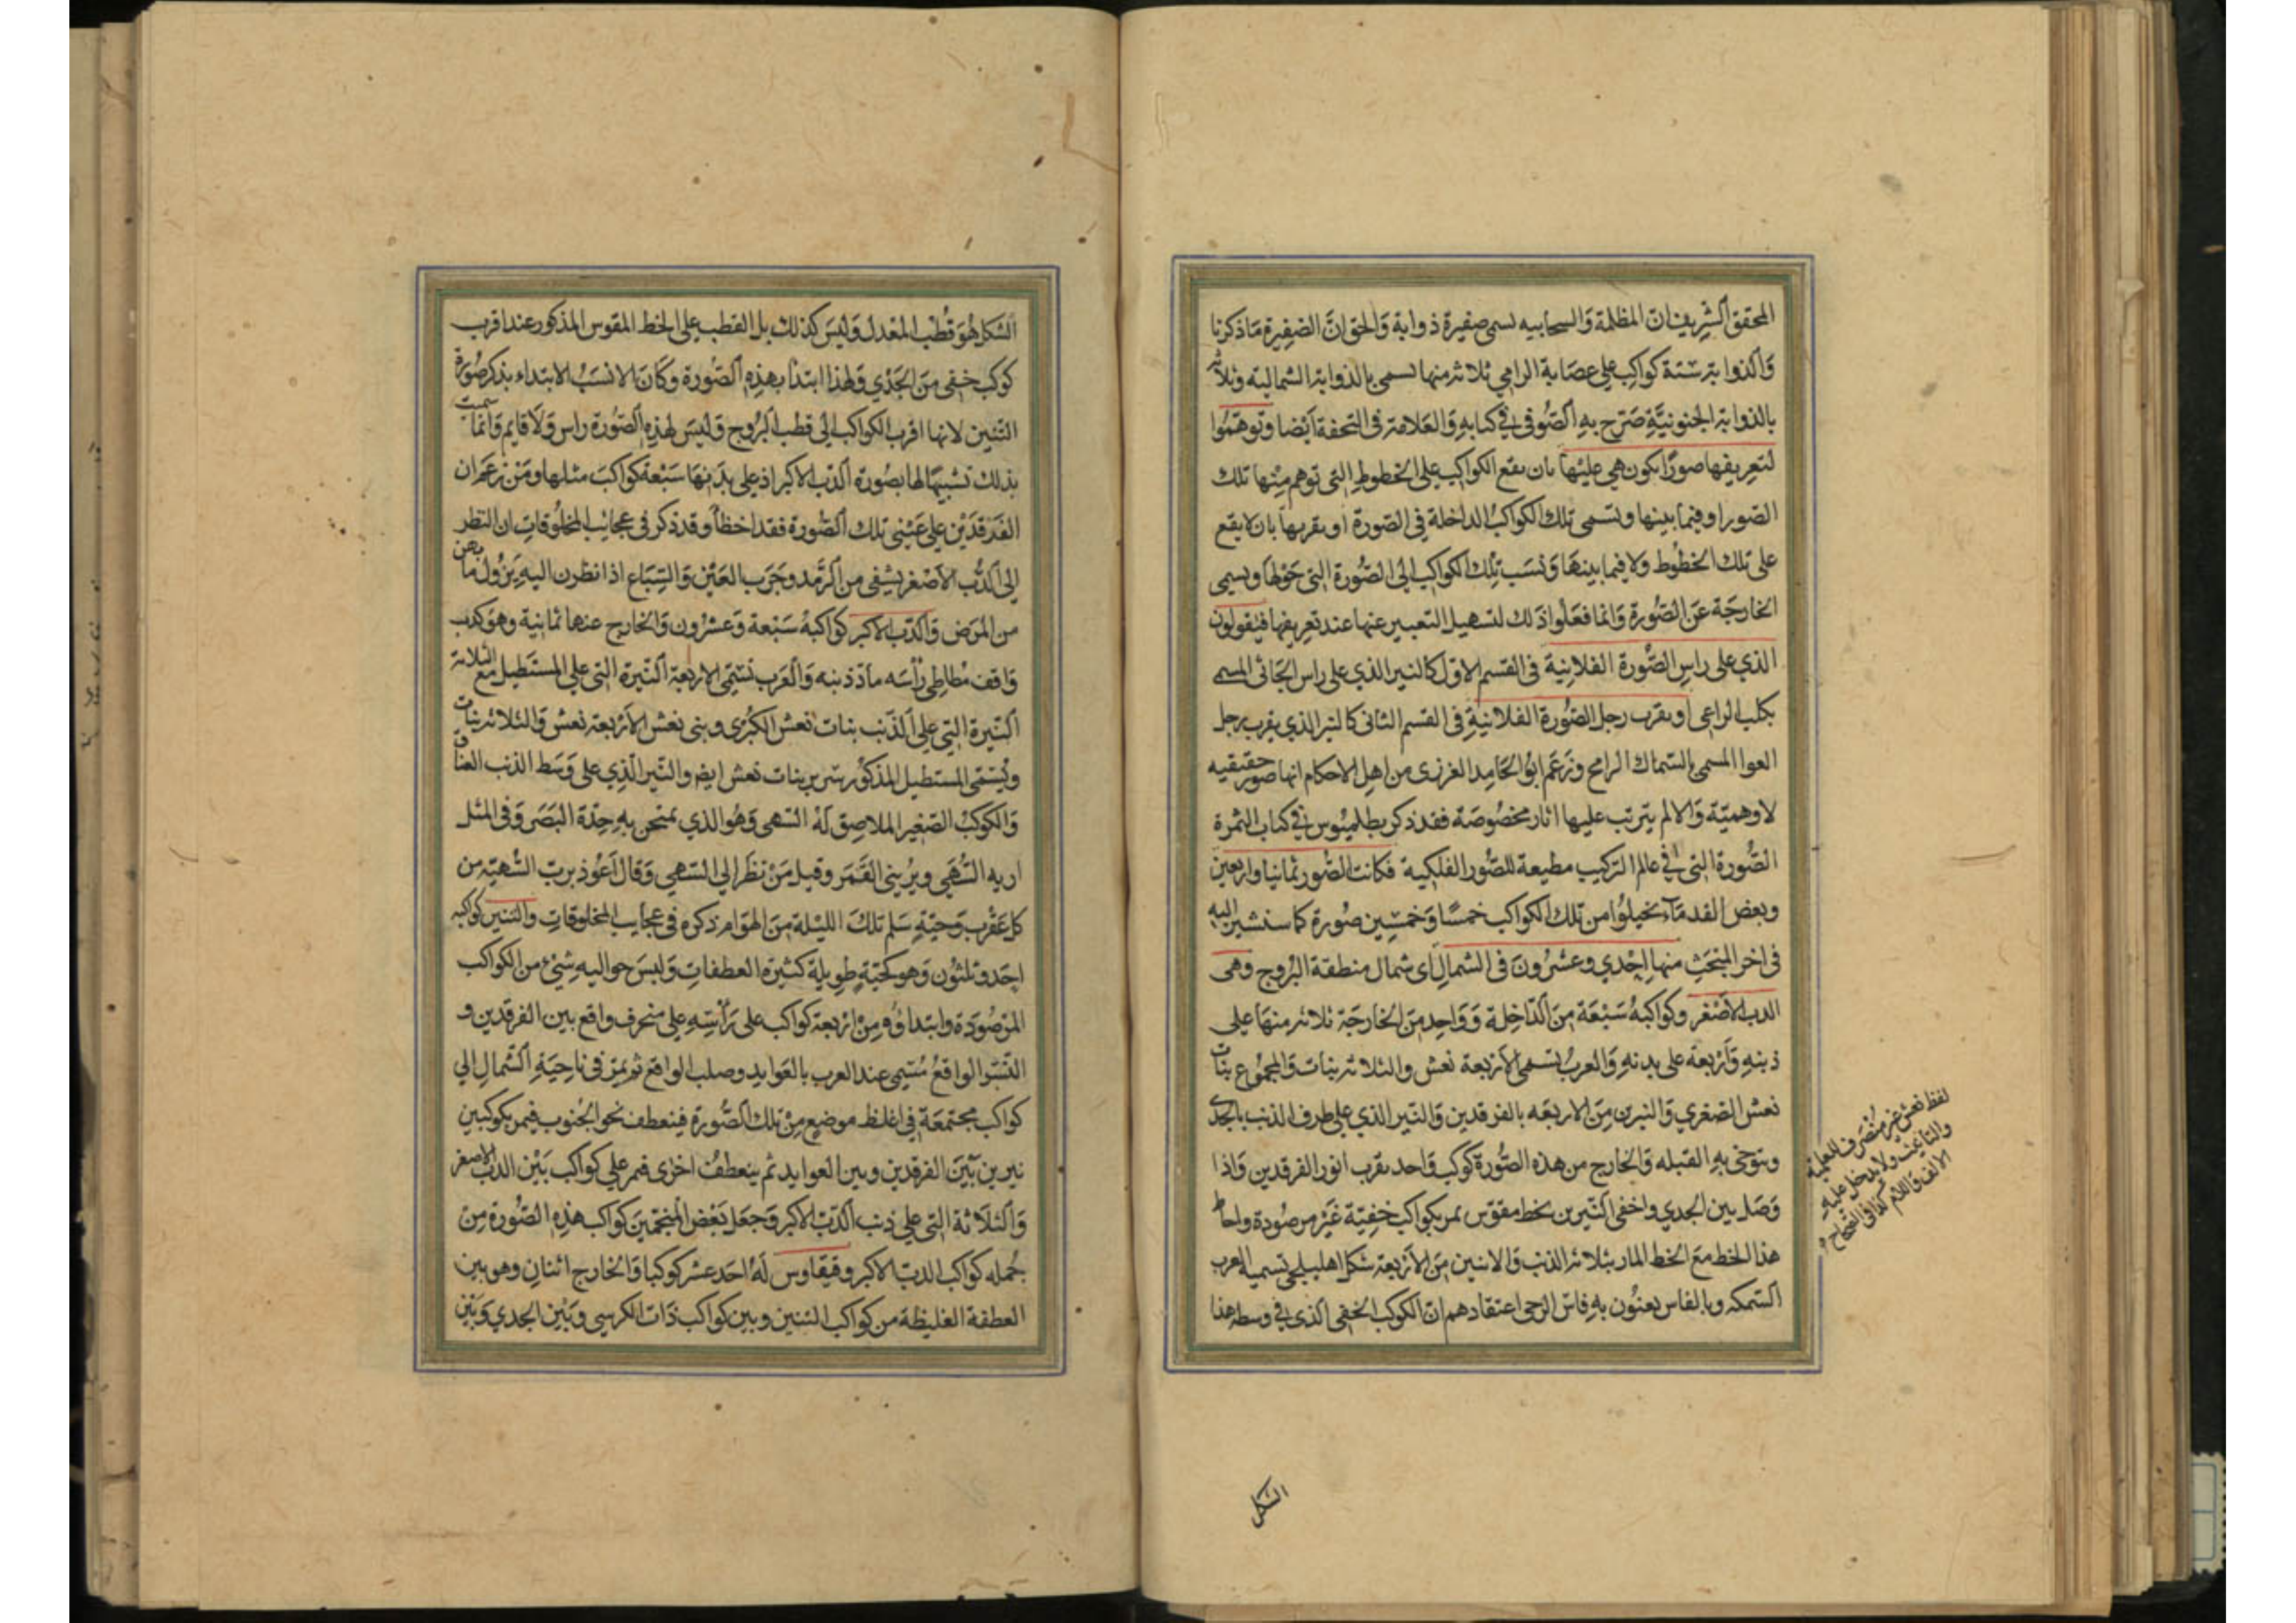 المحقق الشريف ان المظلمة والسحابيه تسمى صفيرة ذوابة والحق ان الضفيرة ما ذكرنا
والذوابة ستة كواكب على عصابة الرامي ثلاثة منها تسمى بالذوابة الشمالية وثلاثة
بالذوابة الجنوبية صرح به الصوفى في كتابه والعلامة فى التحفة ايضا وتوهموا
لتعريفها صورا يكون هي عليها بان يقع الكواكب على الخطوط التى توهم منها تلك
الصور او فيما بينها وتسمى تلك الكواكب الداخلة فى الصورة او بقربها بان لا يقع
على تلك الخطوط ولا فيما بينها ونسب تلك الكواكب الى الصورة التى حولها ويسمى
الخارجة عن الصورة وانما فعلوا ذلك لتسهيل التعبير عنها عند تعريفها فيقولون
الذي على راس الصورة الفلانية فى القسم الاول كالنير الذي على راس الجاثى المسمى
بكلب الراعى او بقرب رجل الصورة الفلانية فى القسم الثانى كالنير الذي بقرب رجل
العوا المسمى بالسماك الرامح وزعم ابو الحامد الغزنى من اهل الاحكام انها صور حقيقيه
لا وهمية والا لم يترتب عليها اثار مخصوصة فقد ذكر بطلميوس في كتاب الثمرة
الصورة التى في عالم التركيب مطيعة للصور الفلكية فكانت الصور ثمانيا واربعين
وبعض القدماء تخيلوا من تلك الكواكب خمسا وخمسين صورة كما سنشير اليه
فى اخر المبحث منها احدي وعشرون فى الشمال اى شمال منطقة البروج وهى
الدب الاصغر وكواكبه سبعة من الداخلة وواحد من الخارجة ثلاثة منها على
ذنبه واربعة على بدنه والعرب تسمى الاربعة نعش والثلاثة بنات والمجموع بنات
نعش الصغري والنيرين من الاربعه بالفرقدين والنير الذي على طرف الذنب بالجدى
ويتوخى به القبله والخارج من هذه الصورة كوكب واحد بقرب انور الفرقدين واذا
وصل بين الجدي واخفى النيرين بخط مقوس يمر بكواكب خفية غير مرصودة واحاط
هذا الخط مع الخط المار بثلاثة الذنب والاثنين من الاربعة شكل اهليلجى تسميه العرب
السمكه وبالفاس يعنون به فاس الرحى اعتقادهم ان الكوكب الخفى الذى في وسط هذا
لفظ نعش غير منصرف للعلمية
والتانيث ولا يدخل عليه
الالف واللام كذا فى الصحاح
الشكل
الشكل هو قطب المعدل وليس كذلك بل القطب على الخط المقوس المذكور عند اقرب
كوكب خفى من الجدي ولهذا ابتدأ بهذه الصورة وكان الانسب الابتداء بذكر صورة
التنين لانها اقرب الكواكب الى قطب البروج وليس لهذه الصورة راس ولا قايم وانما سميت
بذلك تشبيها لها بصورة الدب الاكبر اذ على بدنها سبعة كواكب مثلها ومن زعم ان
الفرقدين على عينى تلك الصورة فقد اخطأ وقد ذكر فى عجائب المخلوقات ان النظر
الى الدب الاصغر يشفى من الرمد وجرب العين والسباع اذا نظرن اليه يزول ما بهن
من المرض والدب الاكبر كواكبه سبعة وعشرون والخارج عنها ثمانية وهو كدب
واقف مطاطى رأسه ماد ذنبه والعرب تسمى الاربعة النيرة التى على المستطيل مع الثلاثة
النيرة التى على الذنب بنات نعش الكبرى وبنى نعش الاربعة نعش والثلاثة بنات
ويسمى المستطيل المذكور سرير بنات نعش ايضا والنير الذي على وسط الذنب العناق
والكوكب الصغير الملاصق له السهى وهو الذي يمتحن به حدة البصر وفى المثل
اريه السهى ويرينى القمر وقيل من نظر الى السهى وقال اعوذ برب السهية من
كل عقرب وحية سلم تلك الليلة من الهوام ذكره فى عجايب المخلوقات والتنين كواكبه
احد وثلثون وهو كحية طويلة كثيرة العطفات وليس حواليه شئ من الكواكب
المرصودة وابتداؤه من اربعة كواكب على رأسه على منحرف واقع بين الفرقدين و
النسر الواقع تسمى عند العرب بالعوايد وصلب الواقع ثم يمر فى ناحية الشمال الى
كواكب مجتمعة في اغلظ موضع من تلك الصورة فينعطف نحو الجنوب فيمر بكوكبين
نيرين بين الفرقدين وبين العوايد ثم ينعطف اخرى فيمر على كواكب بين الدب الاصغر
والثلاثة التى على ذنب الدب الاكبر وجعل بعض المنجمين كواكب هذه الصورة من
جمله كواكب الدب الاكبر وقيقاوس له احد عشر كوكبا والخارج اثنان وهو بين
العطفة الغليظة من كواكب التنين وبين كواكب ذات الكرسى وبين الجدي وبين